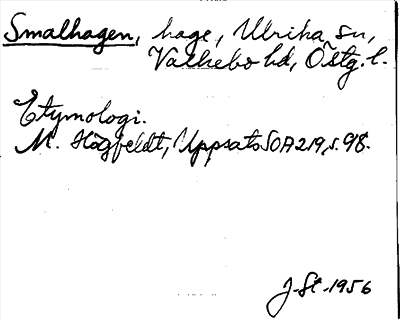 Smalhagen, hage, Ulrika sn,
Valkebo hd, Östg. l.
Etymologi.
M. Högfeldt, Uppsats SOA 219, s. 98.
J. St. 1956